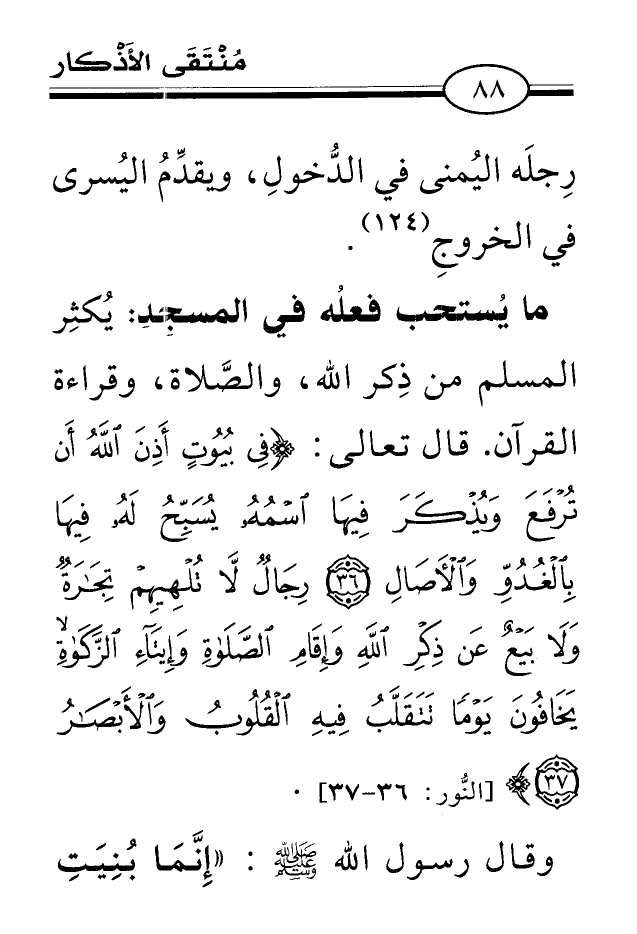 مُنْتَقَى الأَذْكار
٨٨
رِجلَه اليُمنى في الدُّخولِ، ويقدِّمُ اليُسرى
في الخروجِ(١٢٤).
ما يُستحب فعلُه في المسجِد: يُكثِر
المسلم من ذِكر الله، والصَّلاة، وقراءة
القرآن. قال تعالى: ﴿فِى بُيُوتٍ أَذِنَ ٱللَّهُ أَن
تُرْفَعَ وَيُذْكَرَ فِيهَا ٱسْمُهُۥ يُسَبِّحُ لَهُۥ فِيهَا
بِٱلْغُدُوِّ وَٱلْأَصَالِ ٣٦ رِجَالٌ لَّا تُلْهِيهِمْ تِجَـٰرَةٌ
وَلَا بَيْعٌ عَن ذِكْرِ ٱللَّهِ وَإِقَامِ ٱلصَّلَوٰةِ وَإِيتَآءِ ٱلزَّكَوٰةِ ۙ
يَخَافُونَ يَوْمًا تَتَقَلَّبُ فِيهِ ٱلْقُلُوبُ وَٱلْأَبْصَـٰرُ
٣٧﴾ [النُّور: ٣٦-٣٧].
وقال رسول الله ﷺ: «إِنَّمَا بُنِيَتِ